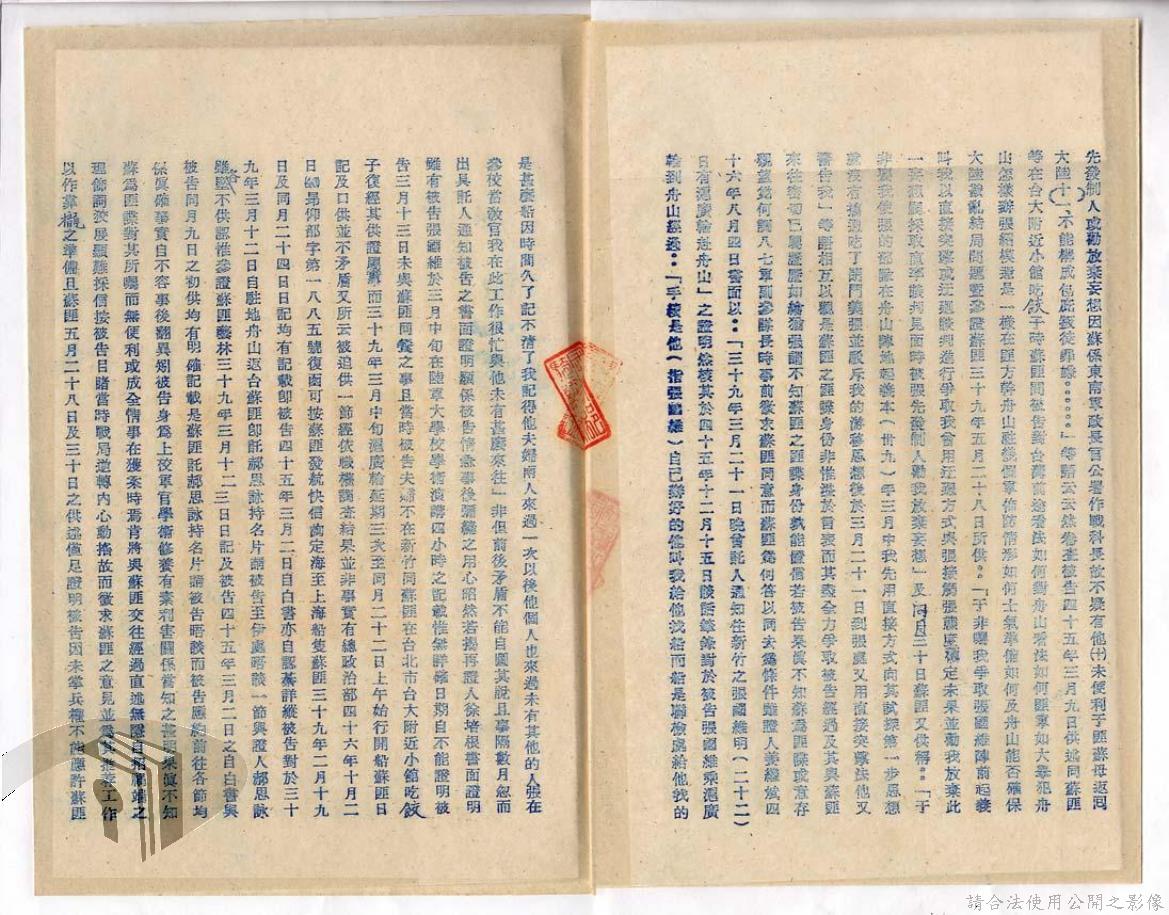 先發制人或勸放棄妄想因蘇係東南軍政長官公署作戰科長故不疑有他㈩未便利子匪蘇毋返回
大陸十一、不能構成包庇叛徒罪嫌⋯⋯」等語云云然卷查被告四十五年三月九日供述同蘇匪
等在台大附近小館吃餃子時蘇匪問被告對台灣前途看法如何對舟山看法如何匪軍如大舉犯舟
山怎樣辦張紹模造是一樣在匪方幹舟山社後個軍佈防情形如何士氣準備如何及舟山能否確保
大陸叛亂結局問題暨參證蘇匪三十九年五月二十八日所供：「于非囑我爭取張國維陣前起義
叫我以直接突擊或迂迴談判進行爭取我曾用迂迴方式與張接觸張態度穩定未果並勸我放棄此
一妄想嗣採取直率談判見面時被張先發制人勸我放棄妄想」及同月三十日蘇匪又供稱：「于
非要我使張的部隊在舟山陣地起義本（卅九）年三月中我先用直接方式向其試探第一步思想
就沒有搞通吃了閉門羹張並駁斥我的游移思想後於三月二十一日到張處又用直接突擊法他又
警告我」等語相互以觀是蘇匪之匪諜身份非惟溢於言表而其盡全力爭取被告經過及其與蘇匪
來往密切已屬證盾如繪猶强謂不知蘇匪之匪諜身份孰能證信若被告果眞不知蘇為匪諜或意存
觀望者何調八七軍到參謀長時事前徵求蘇匪同意而蘇匪為何答以同去為條件雖證人姜繼斌四
十六年八月四日書面以：「三十九年三月二十一日晚曾託人通知住新竹之張國維明（二十二）
日有滬廣輪赴舟山」之證明然核其於四十五年十二月十五日談話錄對於被告張國維乘滬廣
輪到舟山經過：「手續是他（指張國維）自己辦好的他叫我給他找船而船是聯檢處給他找的
是甚麼船因時間久了記不清了我記得他夫婦兩人來過一次以後他個人也來過未有其他的人張在
參校當教官我在此工作很忙與他未有甚麼來往」非但前後矛盾不能自圓其說且事隔數月忽而
出具託人通知被告之書面證明顯係被告情急事後彌縫之用心昭然若揭再證人徐培根書面證明
雖有被告張國維於三月中旬在陸軍大學校學術演講四小時之記載惟無詳確日期自不能證明被
告三月十三日未與蘇匪同餐之事且當時被告夫婦不在新竹同蘇匪在台北市台大附近小館吃餃
子復經其供證屬實而三十九年三月中旬滬廣輪延期三次至同月二十二日上午始行開船蘇匪日
記及口供並不矛盾又所云被追供一節經依職權調查結果並非事實有總政治部四十六年十月二
日㈣昂仰部字第一八八五號復函可按蘇匪發航快信尙定海至上海船隻蘇匪三十九年二月十九
日及同月二十四日日記均有記載卽被告四十五年三月二日自白書亦自認綦詳縱被告對於三十
九年三月十二日自駐地舟山返台蘇匪卽託郝思詠持名片請被告至伊處晤談一節與證人郝思詠
雖臨終不供認惟參證蘇匪藝林三十九年三月十二三日日記及被告四十五年三月二日之自白書與
被告同月九日之初供均有明確記載是蘇匪託郝思詠持名片請被告晤談而被告應約前往各節均
係眞確事實自不容事後翻異矧被告身爲上校軍官學術修養有素利害關係當知之甚明果眞不知
蘇爲匪諜對其所囑而無便利或成全情事在獲案時焉肯將與蘇匪交往經過直述無隱自招禍端之
理飾詞狡展顯難採信按被告目睹當時戰局逆轉內心動搖故而徵求蘇匪之意見並爲其担荐工作
以作靠攏之準備且蘇匪五月二十八日及三十日之供述僅足證明被告因未掌兵權不能應許蘇匪
請合法使用公開之影像